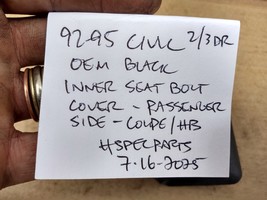 92-95 CIVIC 2/3DR
OEM BLACK
INNER SEAT BOLT
COVER - PASSENGER
SIDE - COUPE/HB
#SPECPARTS
7-16-2025